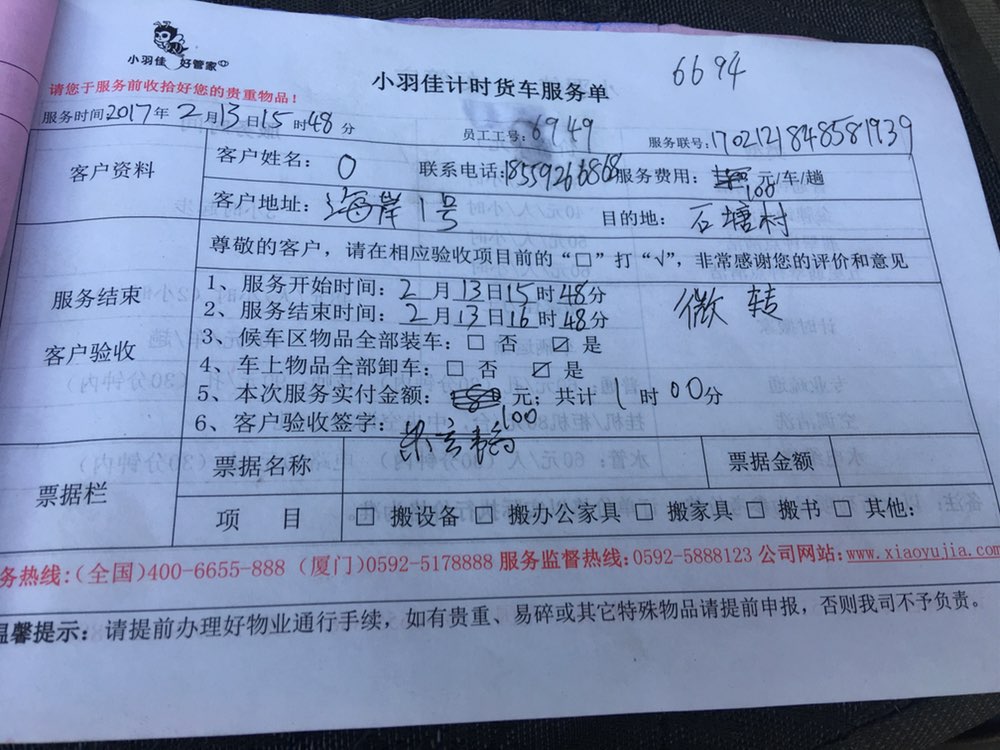 6694
小羽佳 好管家
小羽佳计时货车服务单
请您于服务前收拾好您的贵重物品！
服务时间2017年2月13日15时48分 员工工号：6949 服务联号：1702121848581939
客户资料
客户姓名：0 联系电话：18559266868 服务费用：100元/车/趟
客户地址：海岸1号 目的地：石塘村
服务结束
客户验收
尊敬的客户，请在相应验收项目前的“□”打“√”，非常感谢您的评价和意见
1、服务开始时间：2月13日15时48分
2、服务结束时间：2月13日16时48分
微转
3、候车区物品全部装车：□ 否 ☑ 是
4、车上物品全部卸车：□ 否 ☑ 是
5、本次服务实付金额：100元；共计1时00分
6、客户验收签字：
票据栏
票据名称 票据金额
项 目 □ 搬设备 □ 搬办公家具 □ 搬家具 □ 搬书 □ 其他：
务热线：（全国）400-6655-888（厦门）0592-5178888 服务监督热线：0592-5888123 公司网站：www.xiaoyujia.com
温馨提示：请提前办理好物业通行手续，如有贵重、易碎或其它特殊物品请提前申报，否则我司不予负责。